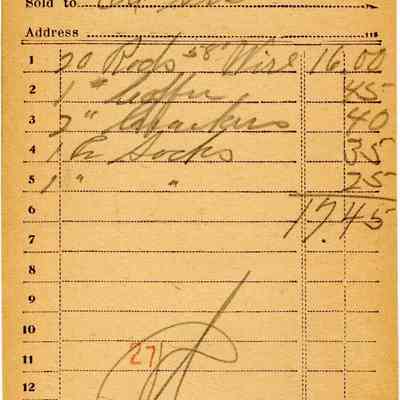 Sold to
Address
1 20 Rods 58" Wire 16.00
2 1 " Coffee 45
3 2 " Crackers 40
4 1 Pr Socks 35
5 1 " " 25
6 17.45
7
8
9
10
11 27
12